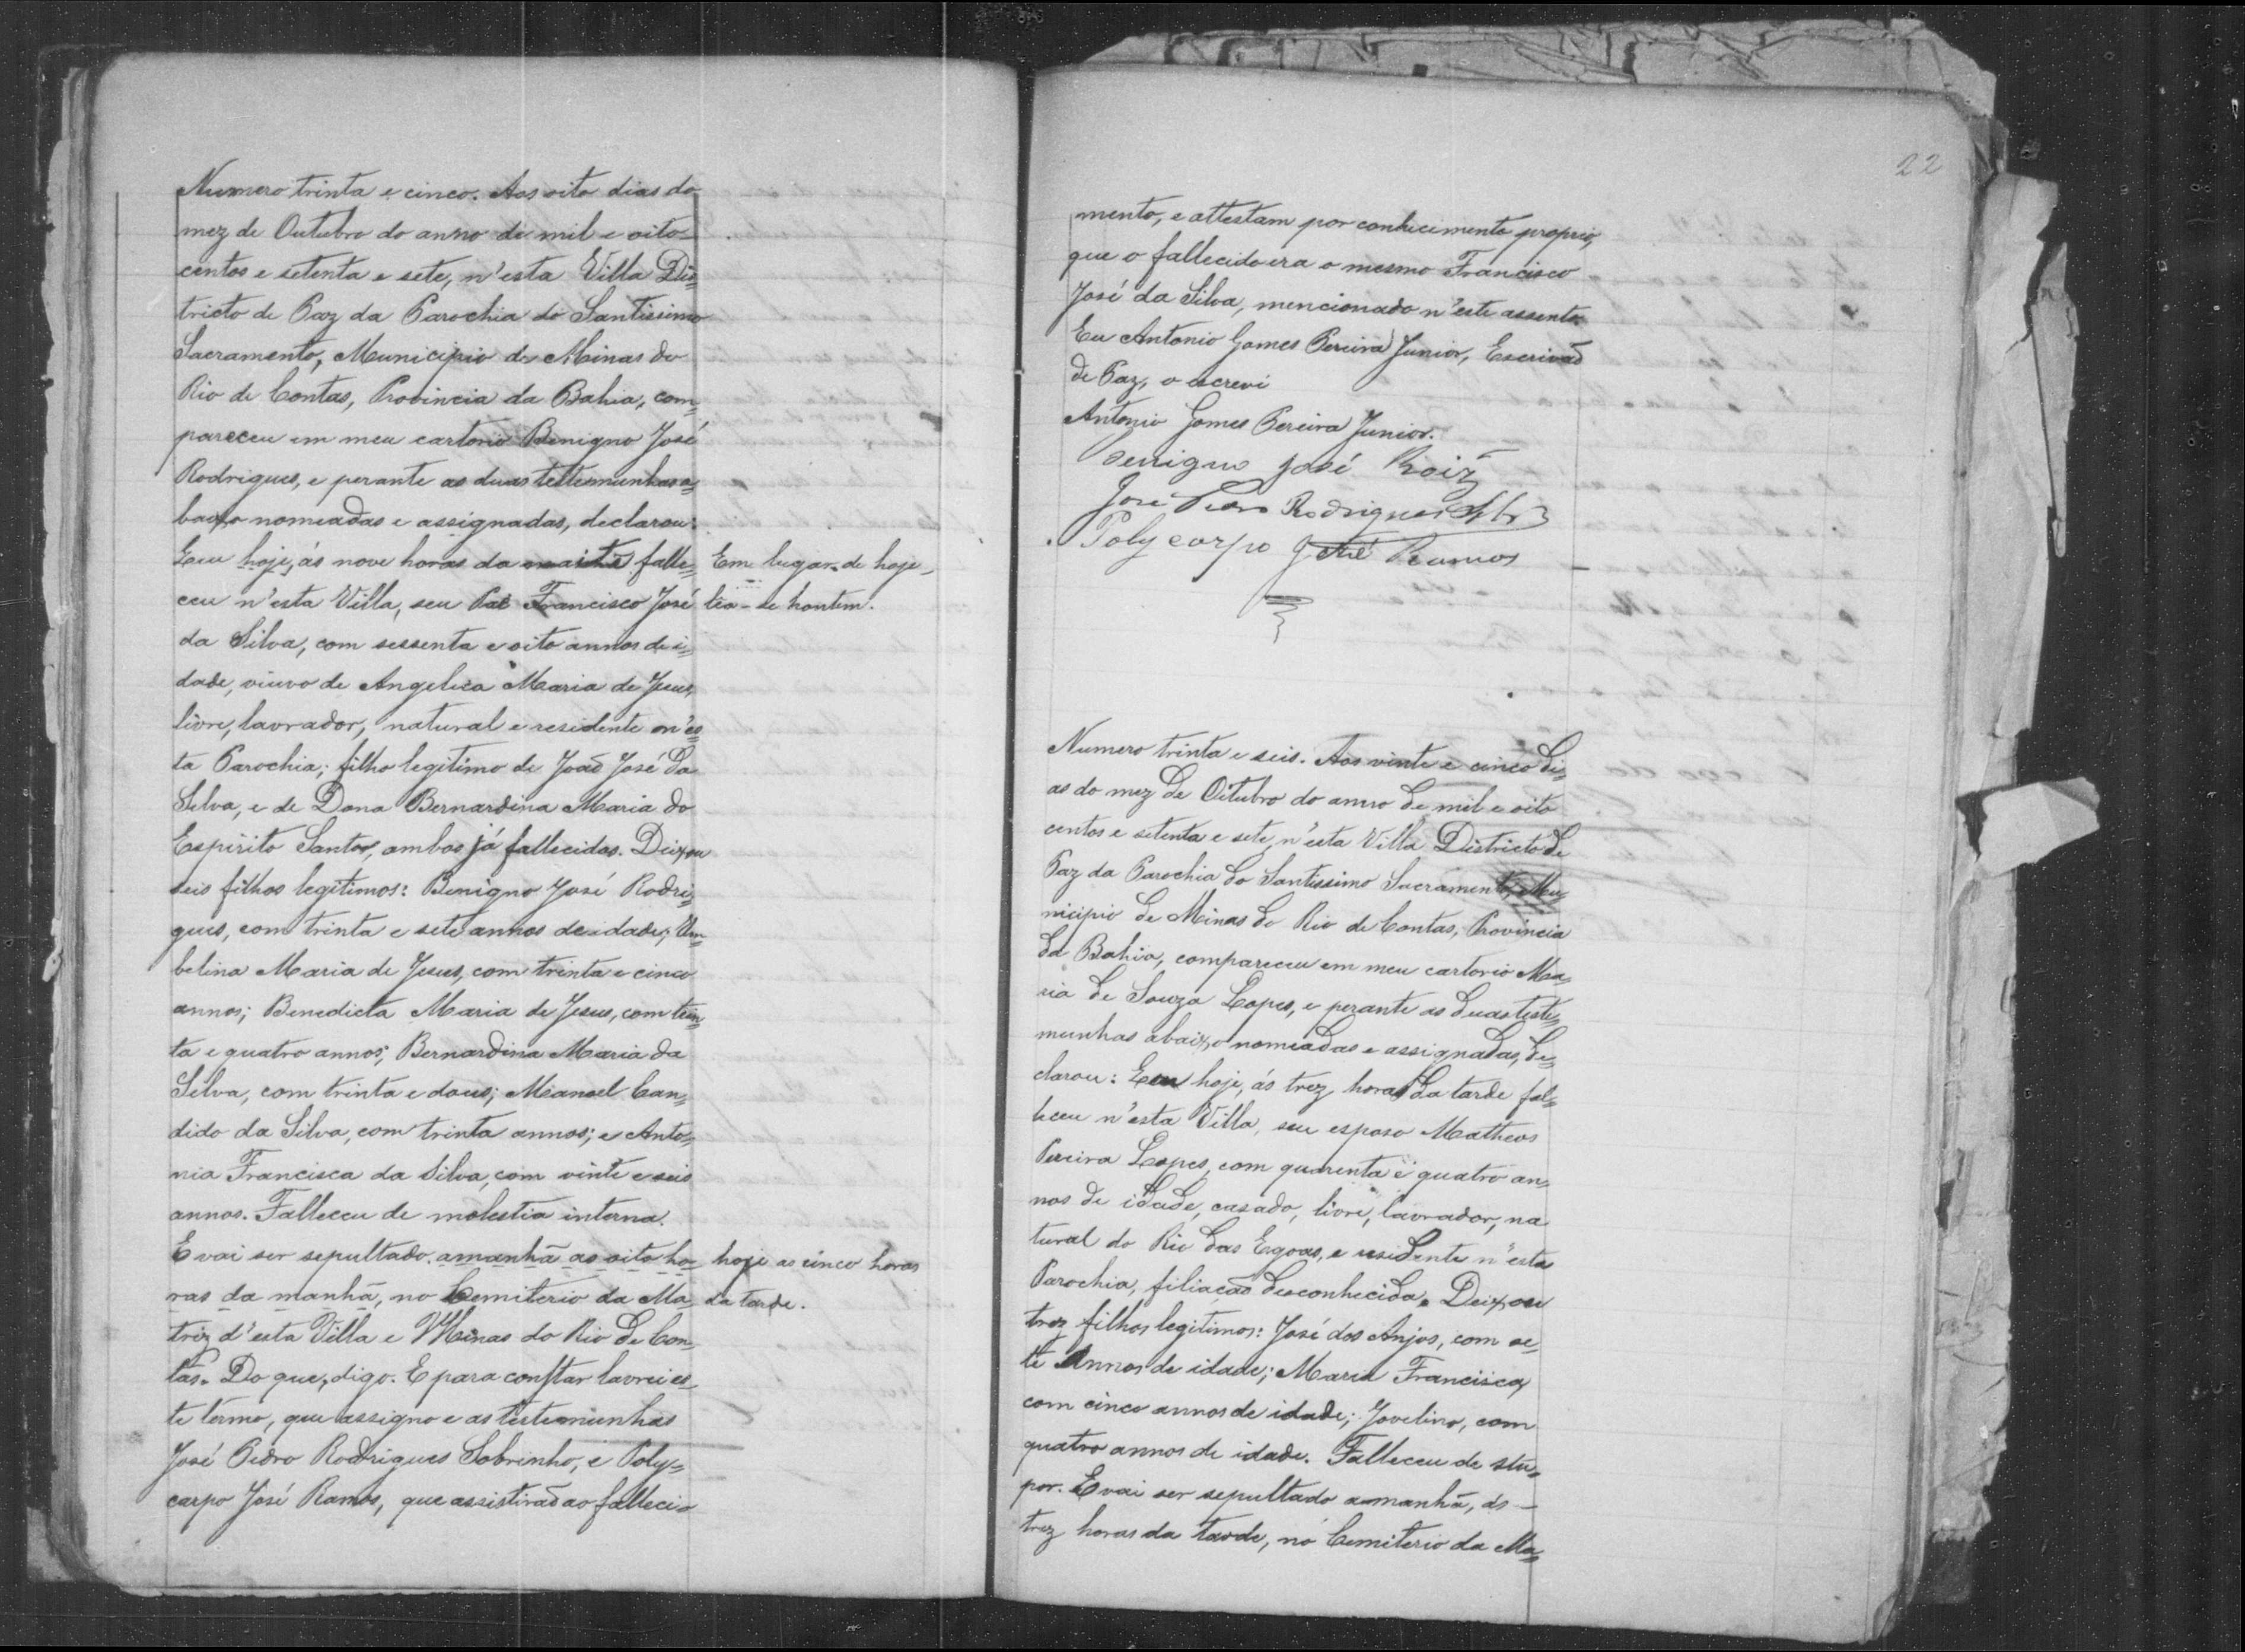 Numero trinta e cinco. Aos oito dias do
mez de Outubro do anno de mil e oito-
centos e setenta e sete, n'esta Villa Dis=
tricto de Paz da Parochia do Santissimo
Sacramento, Municipio de Minas do
Rio de Contas, Provincia da Bahia, com=
pareceu em meu cartorio Benigno José
Rodrigues, e perante as duas testemunhas a=
baixo nomeadas e assignadas, declarou:
Que hoje, ás nove horas da noite falle=
ceu n'esta Villa, seu Pai Francisco José
da Silva, com sessenta e oito annos de i=
dade, viuvo de Angelica Maria de Jesus,
livre, lavrador, natural e residente n'es=
ta Parochia; filho legitimo de João José da
Silva, e de Dona Bernardina Maria do
Espirito Santo, ambos já fallecidos. Deixou
seis filhos legitimos: Benigno José Rodri=
gues, com trinta e sete annos de idade; Um=
belina Maria de Jesus, com trinta e cinco
annos; Benedicta Maria de Jesus, com trin=
ta e quatro annos; Bernardina Maria da
Silva, com trinta e dous; Manoel Can=
dido da Silva, com trinta annos; e Anto=
nia Francisca da Silva, com vinte e seis
annos. Falleceu de molestia interna.
E vai ser sepultado amanhã as oito ho=
ras da manhã, no Cemiterio da Ma=
triz d'esta Villa e Minas do Rio de Con=
tas. Do que, digo. E para constar lavrei es=
te termo, que assigno e as testemunhas
José Pedro Rodrigues Sobrinho, e Poly=
carpo José Ramos, que assistirão ao falleci=
Em lugar de hoje
lea-se hontem.
hoje as cinco horas
da tarde.
22
mento, e attestam por conhecimento proprio,
que o fallecido era o mesmo Francisco
José da Silva, mencionado n'este assento.
Eu Antonio Gomes Pereira Junior, Escrivão
de Paz, o escrevi
Antonio Gomes Pereira Junior.
Benigno José Roiz
José Pedro Rodrigues Sbr
Polycarpo José Ramos
Numero trinta e seis. Aos vinte e cinco di=
as do mez de Outubro do anno de mil e oito
centos e setenta e sete, n'esta Villa Districto de
Paz da Parochia do Santissimo Sacramento, Mu=
nicipio de Minas do Rio de Contas, Provincia
da Bahia, compareceu em meu cartorio Ma=
ria de Souza Lopes, e perante as duas teste=
munhas abaixo nomeadas e assignadas, de=
clarou: Que hoje, ás trez horas da tarde fal=
leceu n'esta Villa, seu esposo Matheos
Pereira Lopes, com quarenta e quatro an=
nos de idade, casado, livre, lavrador, na
tural do Rio das Egoas, e residente n'esta
Parochia, filiação desconhecida. Deixou
trez filhos legitimos: José dos Anjos, com se=
te annos de idade; Maria Francisca,
com cinco annos de idade; Jovelino, com
quatro annos de idade. Falleceu de stu=
por. E vai ser sepultado amanhã, ás -
trez horas da tarde, no Cemiterio da Ma=